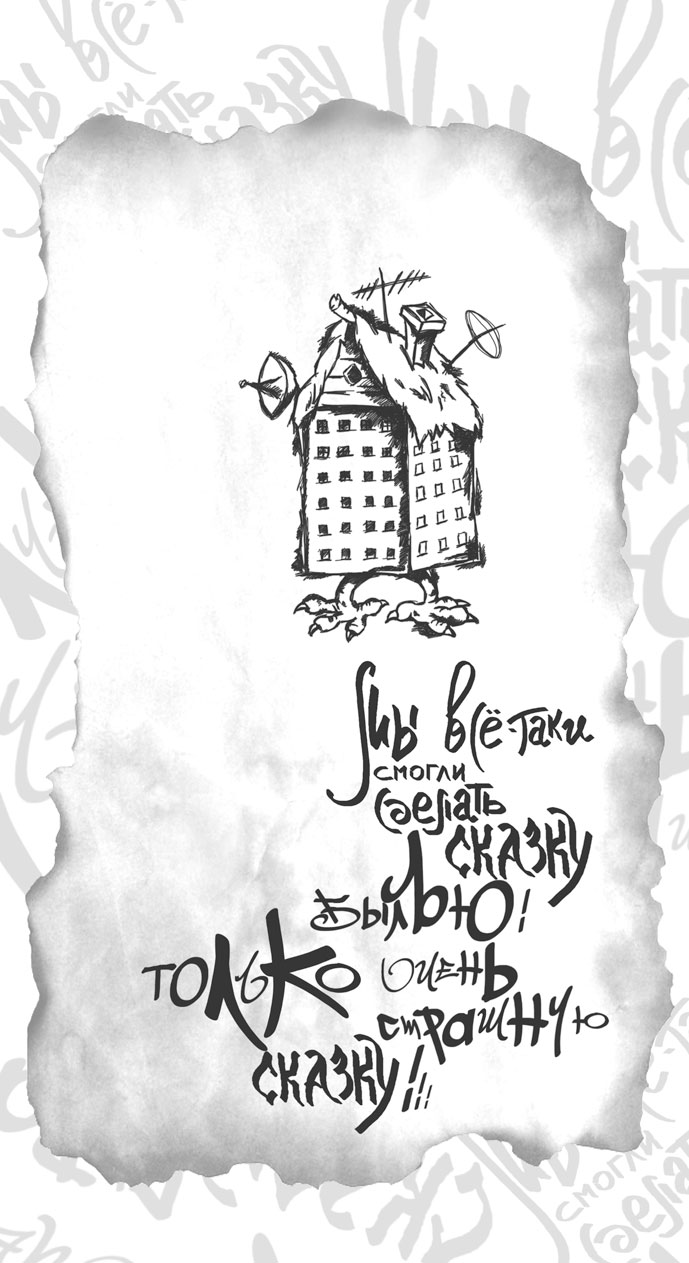 Мы всё-таки
смогли
сделать
сказку
былью!
только очень
страшную
сказку!!!